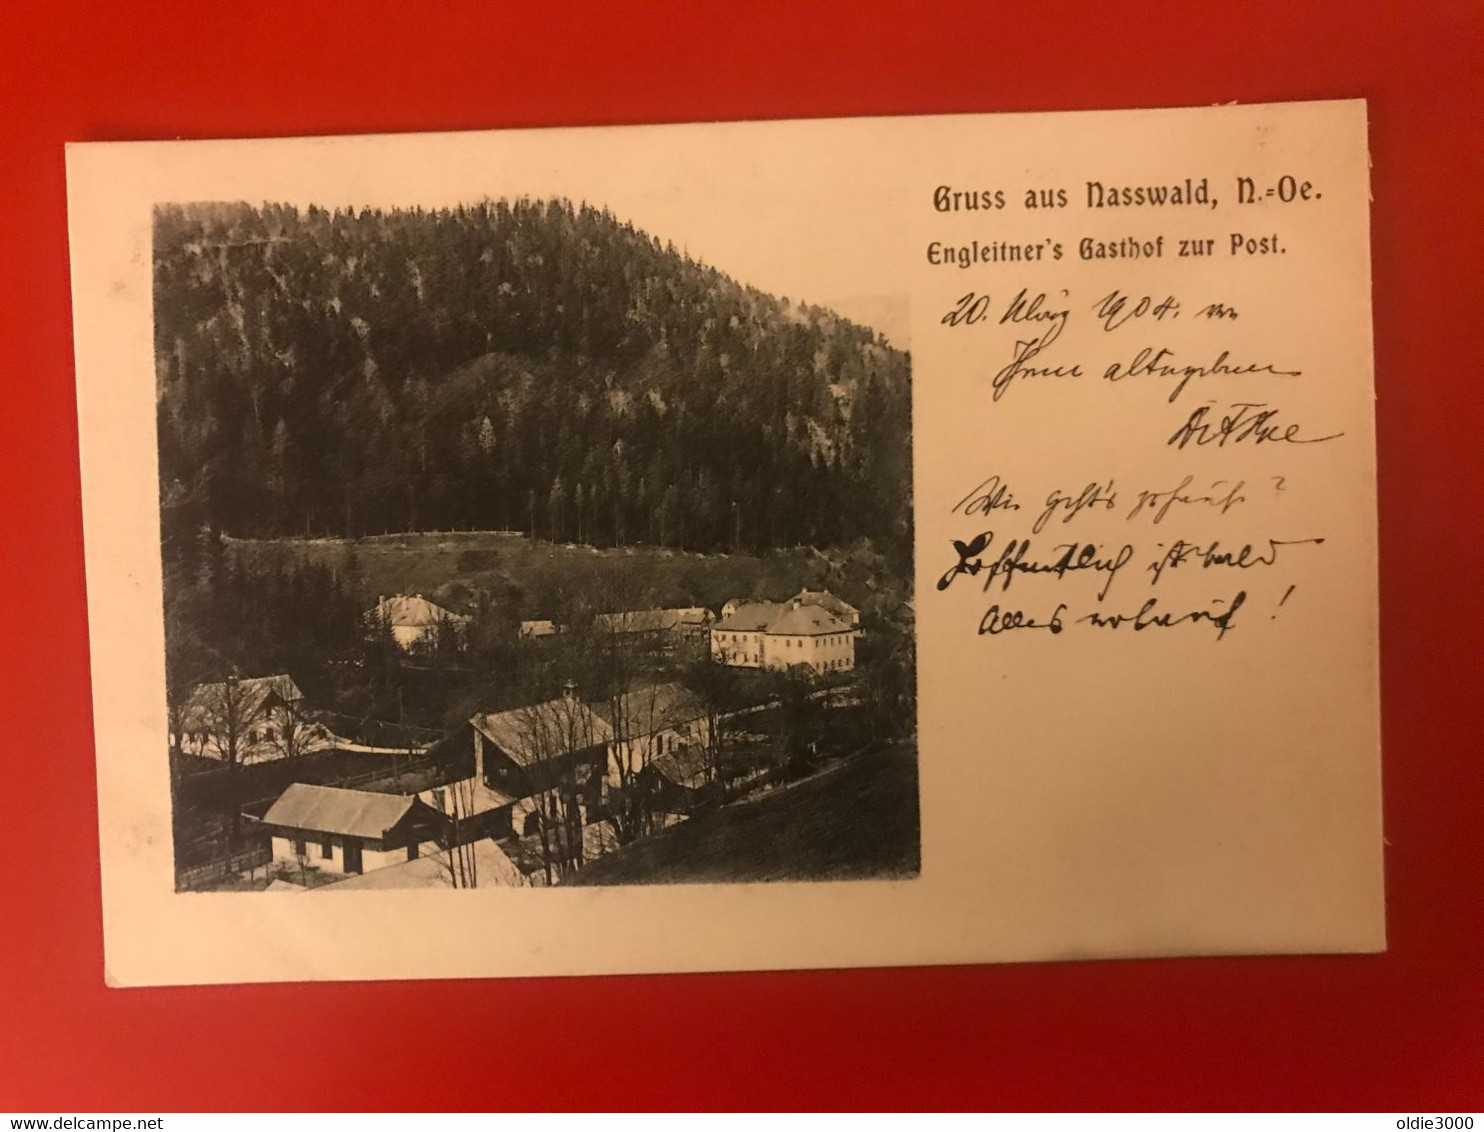 Gruss aus Nasswald, N.=Oe.
Engleitner's Gasthof zur Post.
20. März 1904. von
Ihrem altergebenen
Wie geht's zuhause?
Hoffentlich ist bald
Alles wohlauf!
www.delcampe.net
oldie3000